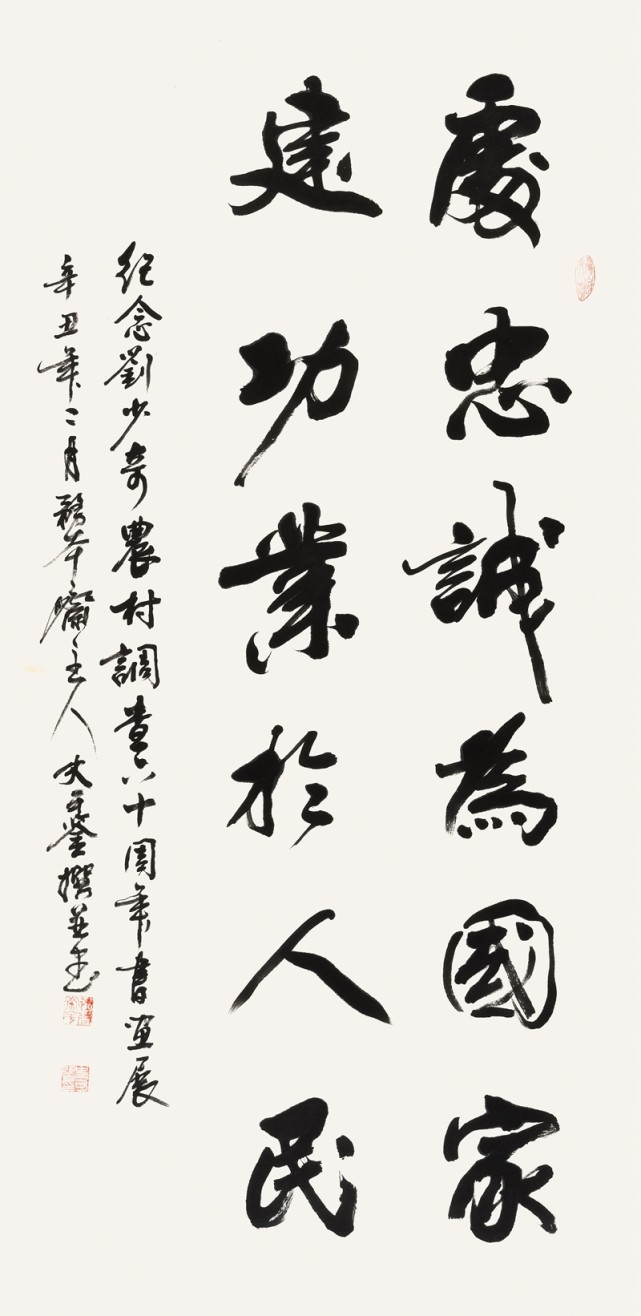 處忠誠為國家
建功業於人民
紀念劉少奇農村調查六十周年書畫展
辛丑年二月主人撰並書